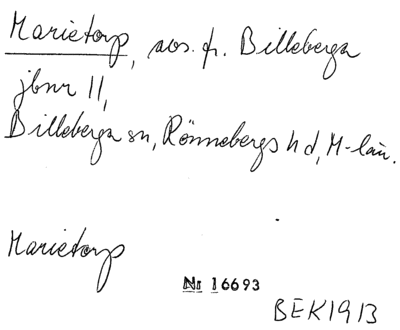 Marietorp, avs. fr. Billeberga
jbnr 11,
Billeberga sn, Rönnebergs hd, M-län.
Marietorp
Nr 16693
BEK1913